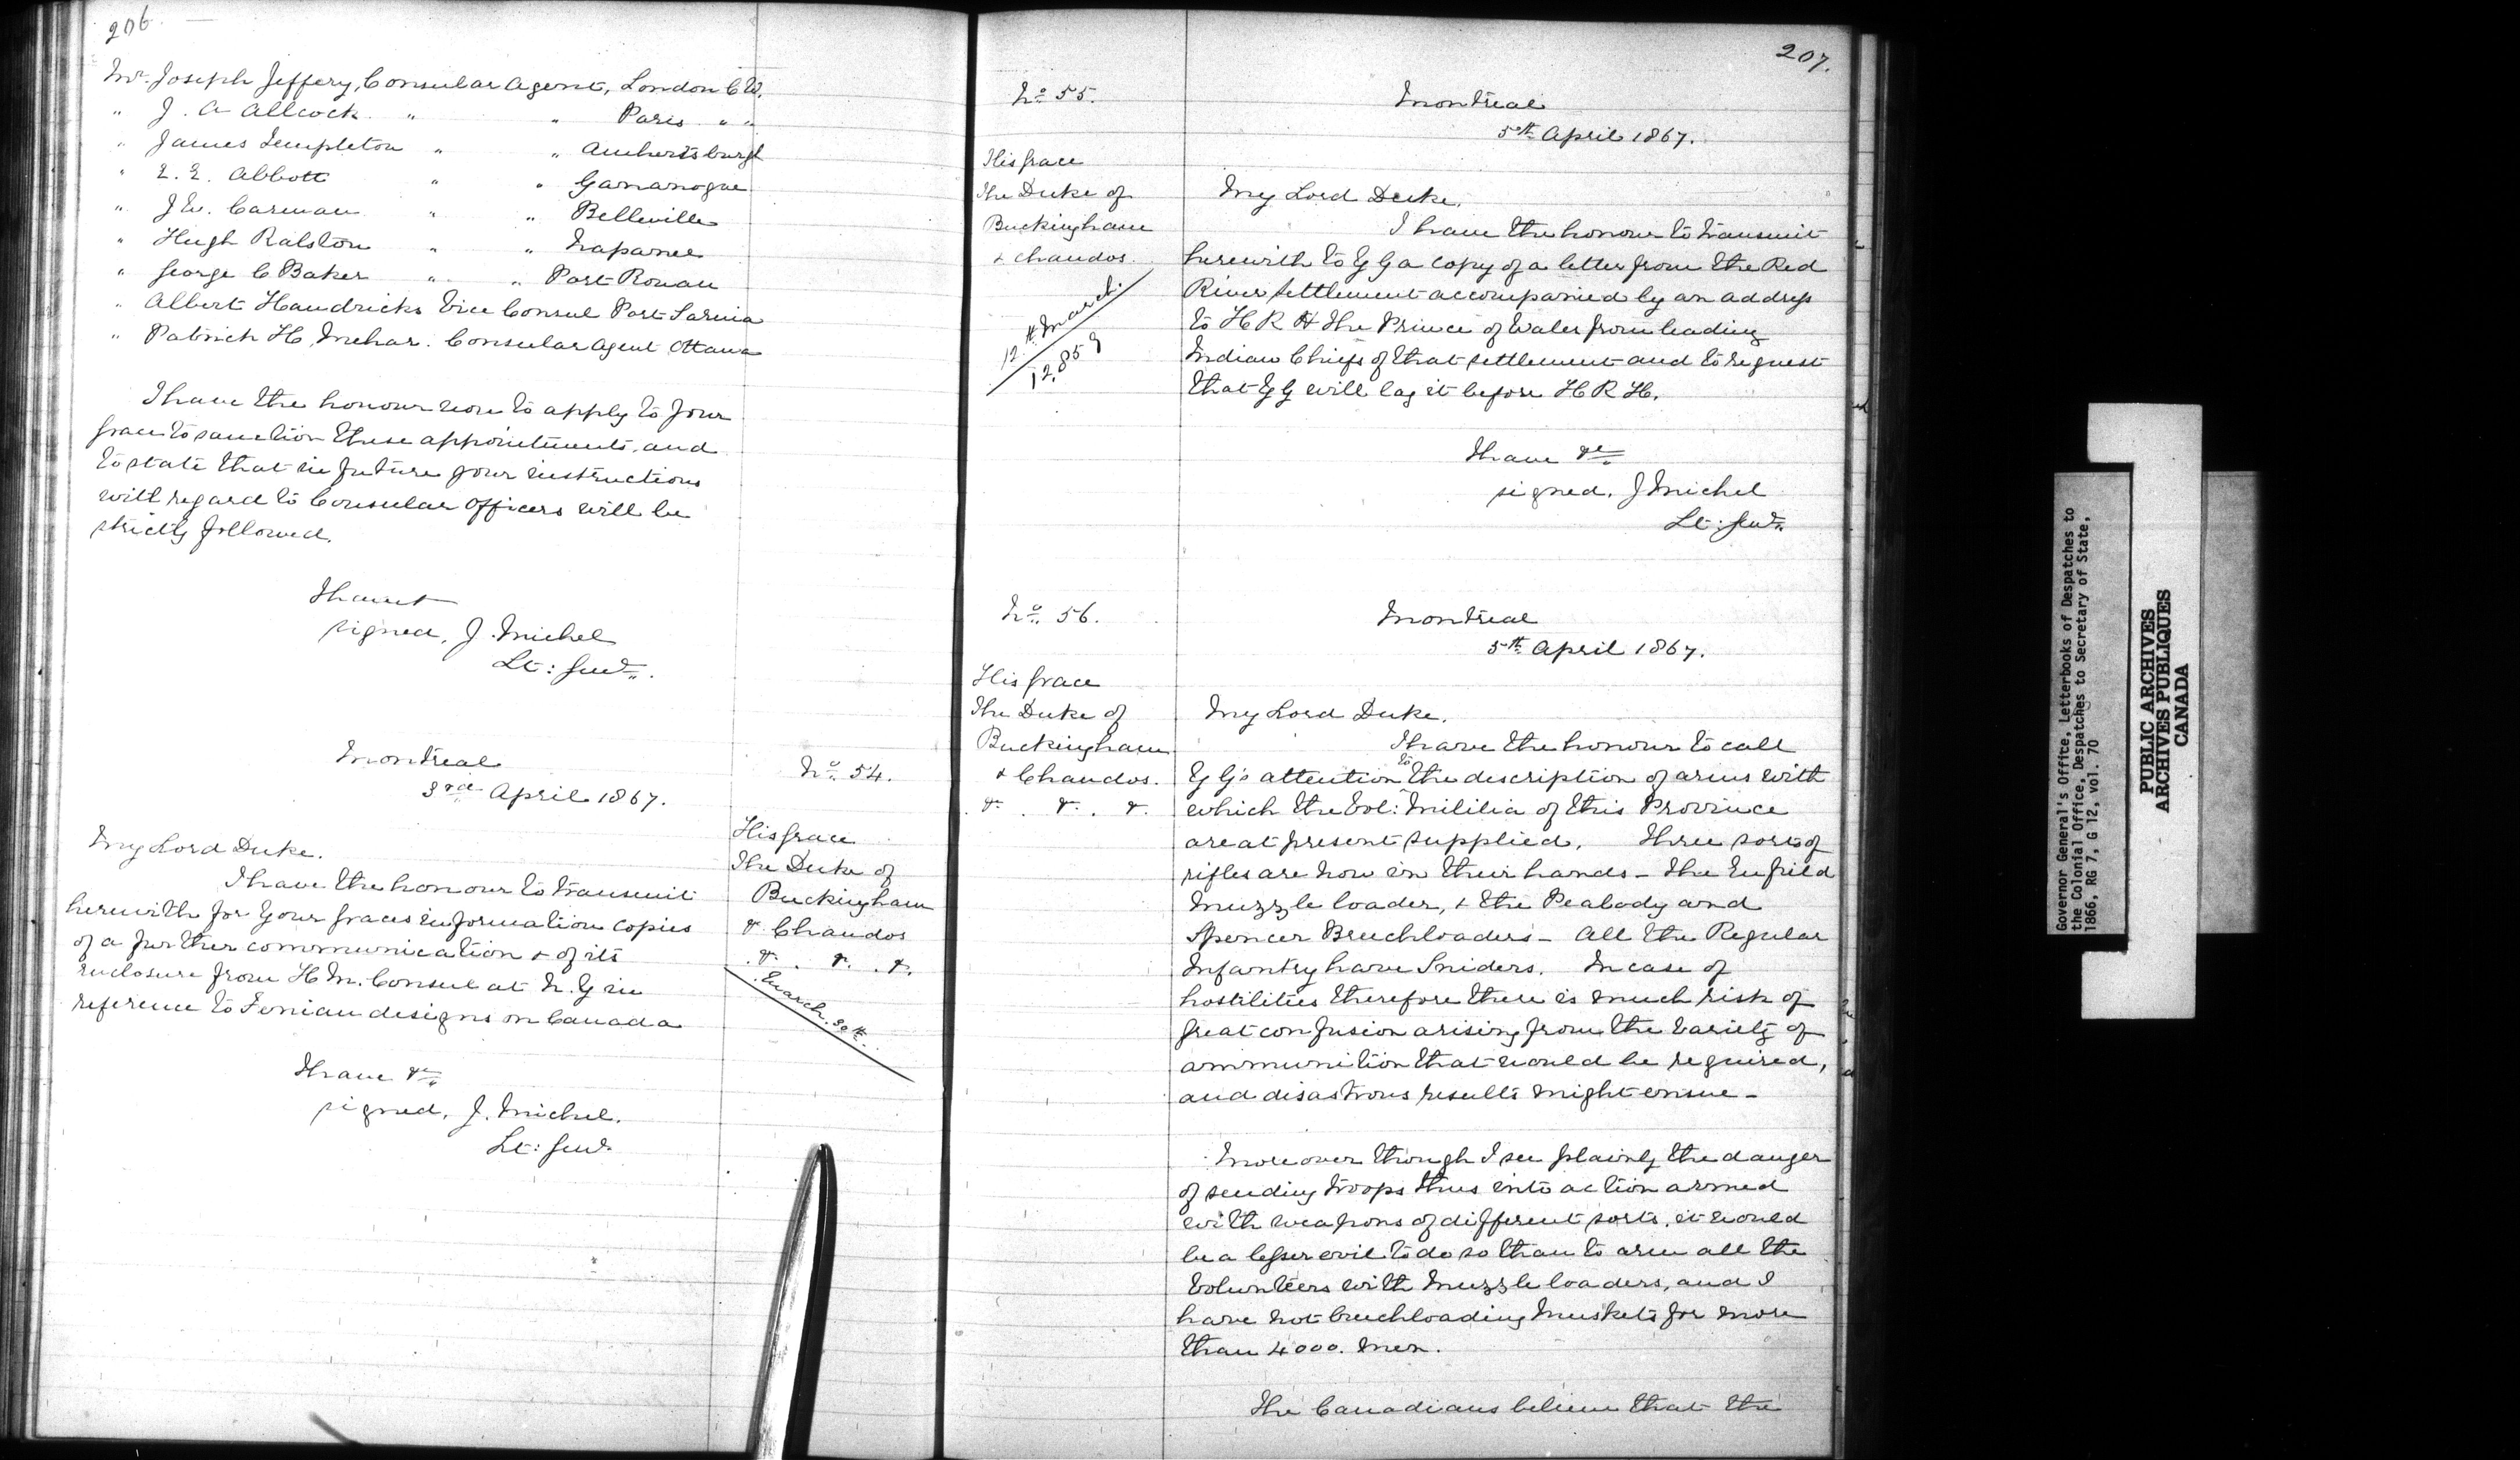 206
Mr. Joseph Jeffery, Consular Agent, London C W.
" J. A Allcock " " Paris " "
" James Templeton " " Amherstburgh
" E. E. Abbott " " Gananoque
" J W. Carman " " Belleville
" Hugh Ralston " " Napanee
" George C Baker " " Port Rowan
" Albert Hendricks Vice Consul Port Sarnia
" Patrick H. Mehar. Consular Agent Ottawa
I have the honour now to apply to Your
Grace to sanction these appointments, and
to state that in future your instructions
with regard to Consular Officers will be
strictly followed.
I have &
signed, J. Michel
Lt: Genl.
Montreal
3rd April 1867.
No. 54.
His Grace
The Duke of
Buckingham
& Chandos
&. &. &.
March. 30th.
My Lord Duke.
I have the honour to transmit
herewith for Your Graces information copies
of a further communication & of its
enclosure from H M. Consul at N. Y in
reference to Fenian designs on Canada
I have &c
signed, J. Michel.
Lt: Genl.
207.
No. 55.
Montreal
5th April 1867.
His Grace
The Duke of
Buckingham
& Chandos.
12th March.
12,859
My Lord Duke,
I have the honour to transmit
herewith to Y G a copy of a letter from the Red
River settlement accompanied by an address
to H R H the Prince of Wales from leading
Indian Chiefs of that settlement and to request
that Y G will lay it before H R H.
I have &c
signed, J Michel
Lt: Genl.
No. 56.
Montreal
5th April 1867.
His Grace
The Duke of
Buckingham
& Chandos.
&. &. &.
My Lord Duke,
I have the honour to call
Y G's attention to the description of arms with
which the Vol: Militia of this Province
are at present supplied. Three sorts of
rifles are now in their hands – the Enfield
Muzzle loader, & the Peabody and
Spencer Breechloaders – All the Regular
Infantry have Sniders. In case of
hostilities therefore there is much risk of
great confusion arising from the variety of
ammunition that would be required,
and disastrous results might ensue –
Moreover though I see plainly the danger
of sending troops thus into action armed
with weapons of different sorts, it would
be a lesser evil to do so than to arm all the
Volunteers with Muzzle loaders, and I
have not breechloading Muskets for more
than 4000. Men.
The Canadians believe that the
Governor General's Office, Letterbooks of Despatches to
the Colonial Office, Despatches to Secretary of State,
1866, RG 7, G 12, vol. 70
PUBLIC ARCHIVES
ARCHIVES PUBLIQUES
CANADA